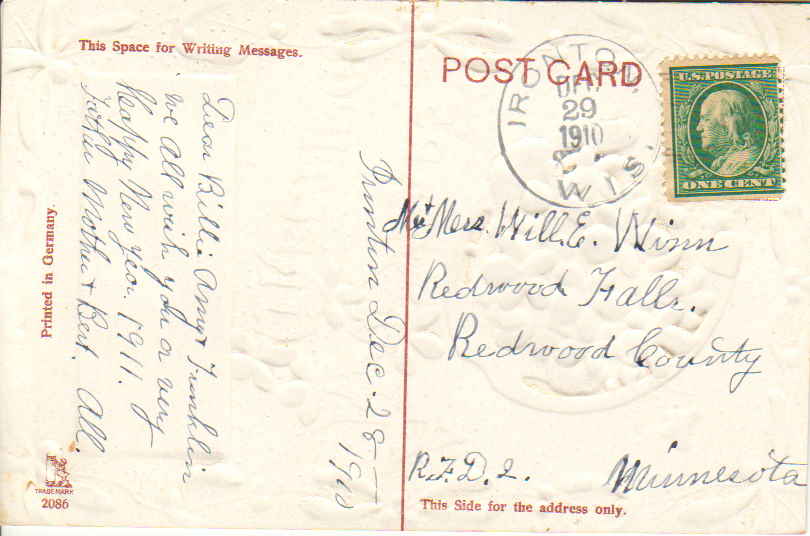 This Space for Writing Messages.
Dear Billie Amy + Franklin
we all wish you a very
Happy New year. 1911.
Father Mother + Bert. All.
Ironton Dec. 28
1910
Printed in Germany.
TRADE MARK
2086
POST CARD
IRONTON,
DEC
29
1910
WIS.
U.S. POSTAGE
ONE CENT
Mr + Mers. Will. E. Winn
Redwood Falls.
Redwood County
R.F.D. 2. Minnesota
This Side for the address only.